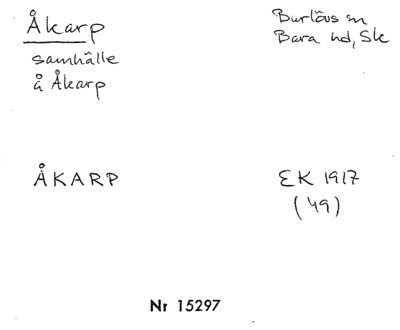 Åkarp
samhälle
å Åkarp
Burlövs sn
Bara hd, Sk
ÅKARP
EK 1917
(49)
Nr 15297